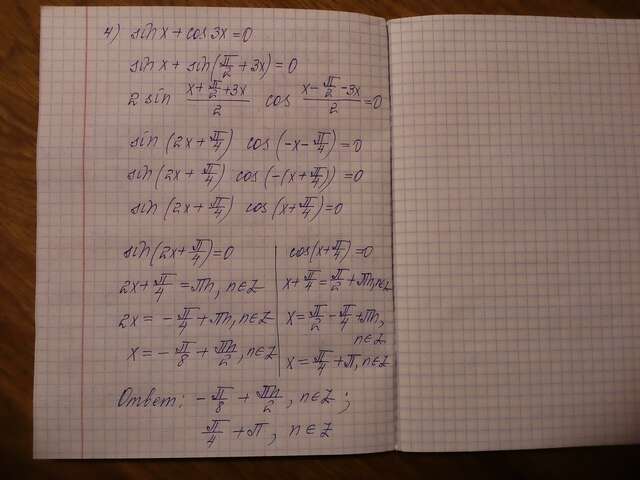 4) sin x + cos 3x = 0
sin x + sin(π/2 + 3x) = 0
2 sin (x + π/2 + 3x)/2 cos (x - π/2 - 3x)/2 = 0
sin (2x + π/4) cos (-x - π/4) = 0
sin (2x + π/4) cos (-(x + π/4)) = 0
sin (2x + π/4) cos (x + π/4) = 0
sin (2x + π/4) = 0
2x + π/4 = πn, n ∈ Z
2x = - π/4 + πn, n ∈ Z
x = - π/8 + πn/2, n ∈ Z
cos(x + π/4) = 0
x + π/4 = π/2 + πn, n ∈ Z
x = π/2 - π/4 + πn,
n ∈ Z
x = π/4 + π, n ∈ Z
Ответ: - π/8 + πn/2, n ∈ Z;
π/4 + π, n ∈ Z